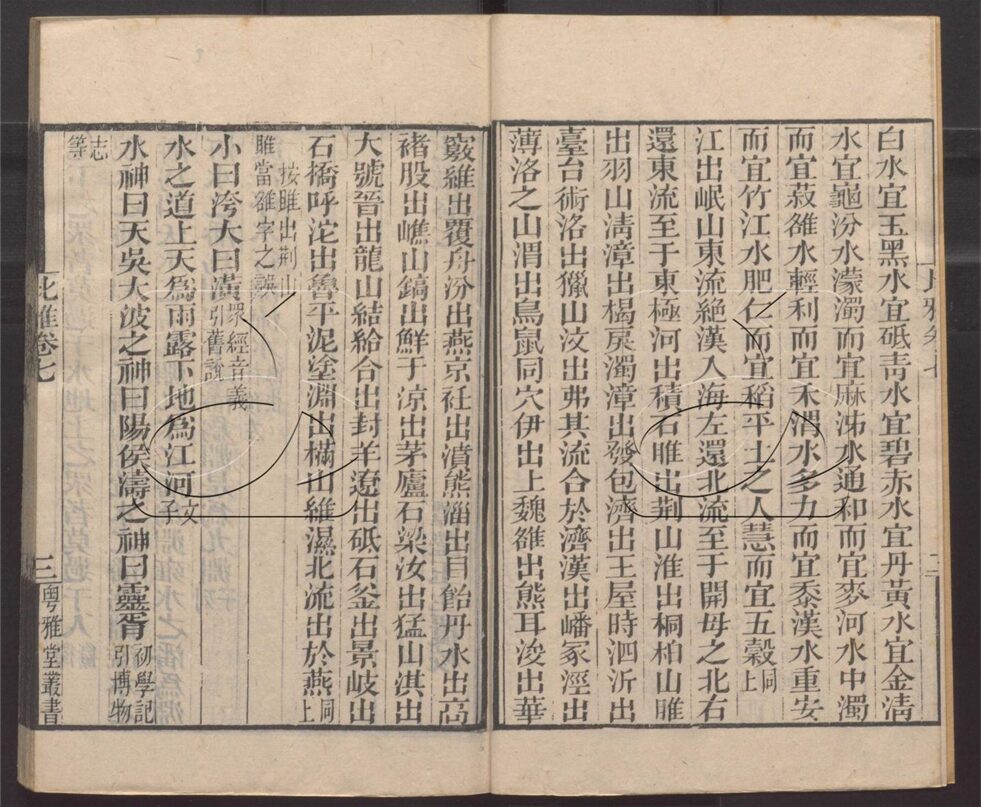 白水宜玉黑水宜砥靑水宜碧赤水宜丹黃水宜金淸
水宜龜汾水濛濁而宜麻泲水通和而宜麥河水中濁
而宜菽雒水輕利而宜禾渭水多力而宜黍漢水重安
而宜竹江水肥仁而宜稻平土之人慧而宜五穀同上
江出岷山東流絕漢入海左還北流至于開母之北右
還東流至于東極河出積石睢出荆山淮出桐柏山睢
出羽山淸漳出楬戾濁漳出發包濟出王屋時泗沂出
臺台術洛出獵山汶出弗其流合於濟漢出嶓冢涇出
薄洛之山渭出鳥鼠同穴伊出上魏雒出熊耳浚出華
竅維出覆舟汾出燕京衽出濆熊淄出目飴丹水出高
褚股出嶕山鎬出鮮于涼出茅廬石梁汝出猛山淇出
大號晉出龍山結給合出封羊遼出砥石釜出景岐出
石橋呼沱出魯平泥塗淵出樠山維濕北流出於燕同上
按睢出荆山
睢當雒字之誤
小曰洿大曰潢衆經音義引舊說
水之道上天為雨露下地為江河文子
水神曰天吳大波之神曰陽侯濤之神曰靈胥初學記引博物
志等
比雅卷七
三
粤雅堂叢書